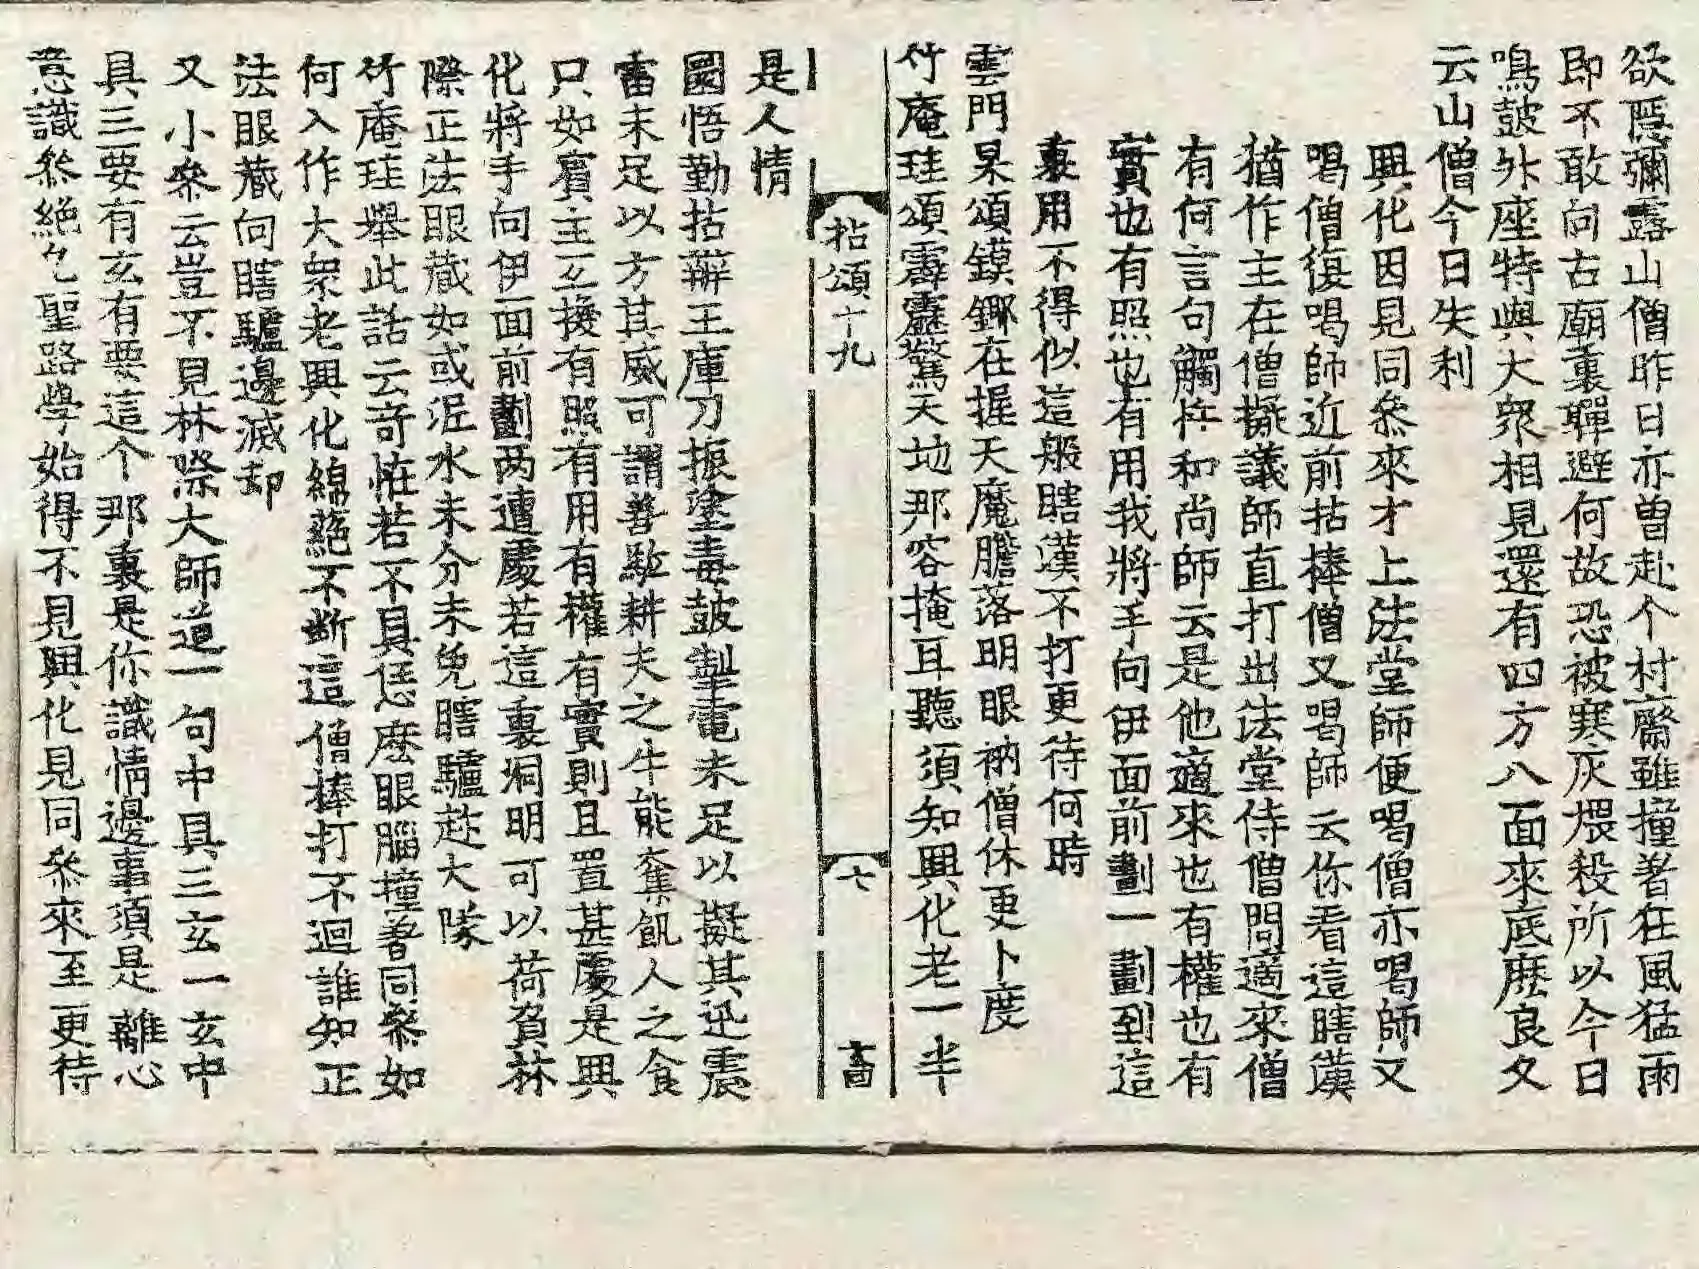 欲隱彌露山僧昨日亦曾赴个村齋雖撞著狂風猛雨
即不敢向古廟裏躲避何故恐被寒灰煨殺所以今日
鳴皷外座特與大衆相見還有四方八面來底麽良久
云山僧今日失利
興化因見同叅來才上法堂師便喝僧亦喝師又
喝僧復喝師近前拈棒僧又喝師云你看這瞎漢
猶作主在僧擬議師直打出法堂侍僧問適來僧
有何言句觸忤和尚師云是他適來也有權也有
實也有照也有用我將手向伊面前劃一劃到這
裏用不得似這般瞎漢不打更待何時
雲門杲頌鏌鎁在握天魔膽落明眼衲僧休更卜度
竹庵珪頌霹靂驚天地那容掩耳聽須知興化老一半
拈頌十九
七
是人情
圜悟勤拈辦王庫刀振塗毒皷掣電未足以擬其迅震
雷未足以方其威可謂善駈耕夫之牛能奪飢人之食
只如賓主互換有照有用有權有實則且置甚處是興
化將手向伊面前劃两遭處若這裏洞明可以荷負林
際正法眼藏如或泥水未分未免瞎驢趂大隊
竹庵珪舉此話云奇恠若不具恁麽眼腦撞著同叅如
何入作大衆老興化綿蕝不斷這僧棒打不迴誰知正
法眼藏向瞎驢邊滅却
又小叅云豈不見林際大師道一句中具三玄一玄中
具三要有玄有要這个那裏是你識情邊事須是離心
意識叅絕凡聖路學始得不見興化見同叅來至更待